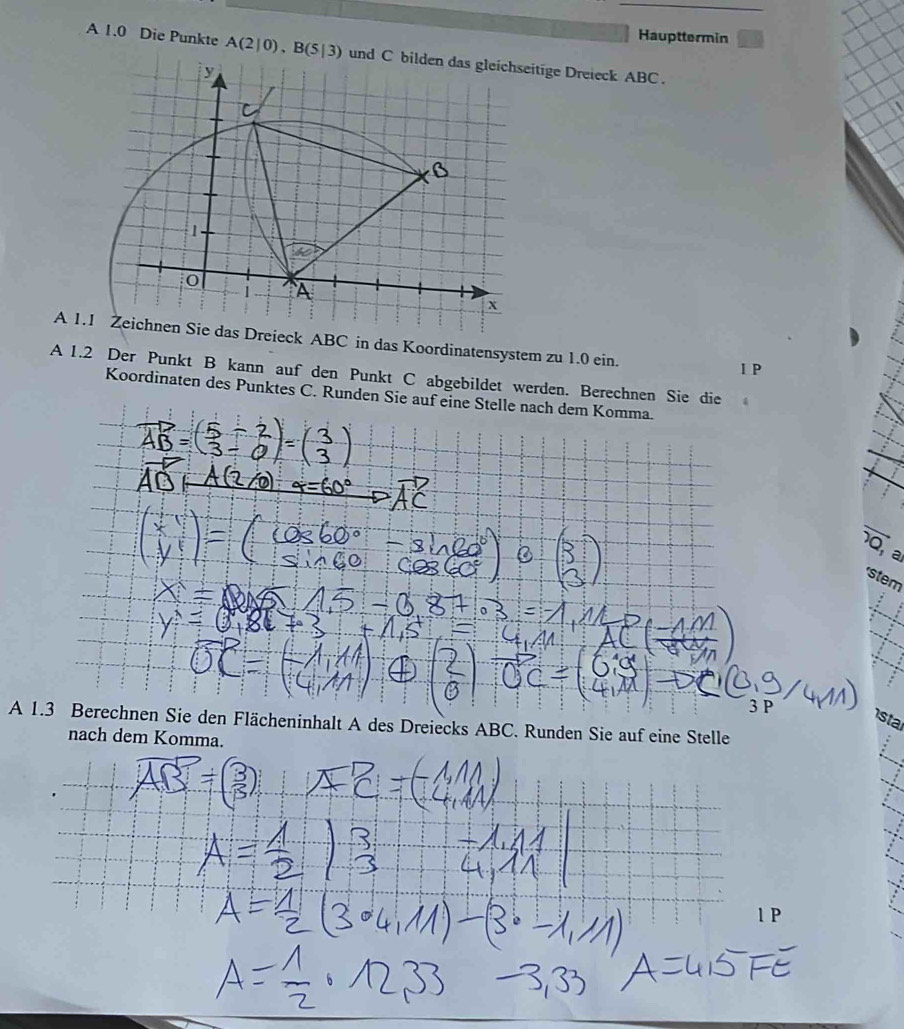 Haupttermin
A 1.0 Die Punkte A(2|0), B(5|3) und C bilden das gleichseitige Dreieck ABC.
y
C
B
1
60°
O 1 A x
A 1.1 Zeichnen Sie das Dreieck ABC in das Koordinatensystem zu 1.0 ein.
1 P
A 1.2 Der Punkt B kann auf den Punkt C abgebildet werden. Berechnen Sie die
Koordinaten des Punktes C. Runden Sie auf eine Stelle nach dem Komma.
AB = (5 - 2 / 3 - 0) = (3 / 3)
AB A(2/0) α=60° AC
(x' / y') = (cos60° -sin60° / sin60 cos60°) ⊙ (3 / 3)
x' = 1,5 - 0,87·3 = -1,11
y' = 0,87·3 + 1,5 = 4,11 AC (-1,11 / 4,11)
OC = (-1,11 / 4,11) ⊕ (2 / 0) OC = (0,9 / 4,11) → C(0,9/4,11)
3 P
A 1.3 Berechnen Sie den Flächeninhalt A des Dreiecks ABC. Runden Sie auf eine Stelle
nach dem Komma.
AB = (3 / 3) AC = (-1,11 / 4,11)
A = 1/2 |3 -1,11 / 3 4,11|
A = 1/2 (3·4,11) - (3·-1,11)
1 P
A = 1/2 · 12,33 -3,33 A = 4,5 FE